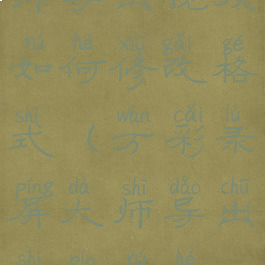 rú hé xiū gǎi gé
如何修改格
shì wàn cǎi lù
式(万彩录
píng dà shī dǎo chū
屏大师导出